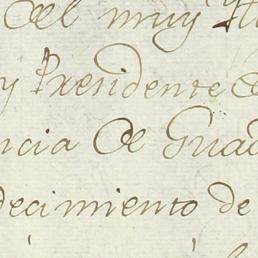 del muy
y Presidente de
ncia de Guad
decimiento de